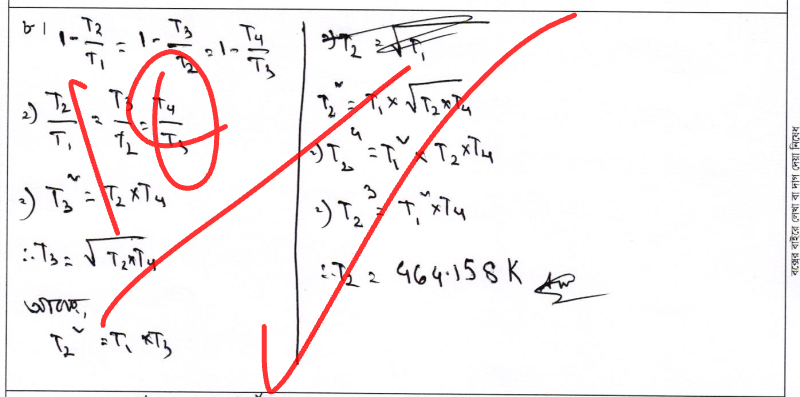 ৮। 1 - T₂/T₁ = 1 - T₃/T₂ = 1 - T₄/T₃
⇒) T₂/T₁ = T₃/T₂ = T₄/T₃
⇒) T₃² = T₂ × T₄
∴ T₃ = √(T₂×T₄)
আবার,
T₂² = T₁ × T₃
⇒) T₂ = √T₁
T₂² = T₁ × √(T₂×T₄)
⇒) T₂⁴ = T₁² × T₂ × T₄
⇒) T₂³ = T₁² × T₄
∴ T₂ = 464.158 K Ans
বক্সের বাইরে লেখা বা দাগ দেয়া নিষেধ